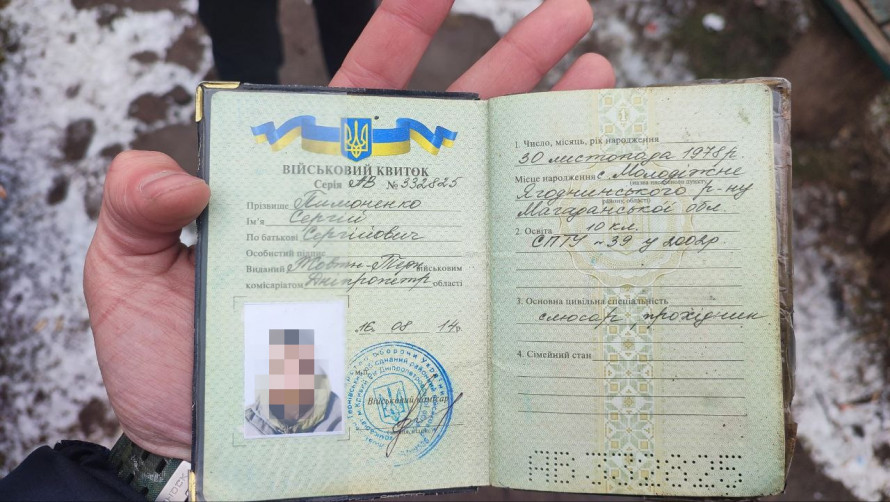 ВІЙСЬКОВИЙ КВИТОК
Серія АВ № 332825
Прізвище Лимоненко
Ім'я Сергій
По батькові Сергійович
Особистий підпис
Виданий Жовтн-Терн військовим
комісаріатом Дніпропетр області
16 08 14р.
М.П.
Військовий комісар
1
1. Число, місяць, рік народження
30 листопада 1978р.
Місце народження с. Молодіжне
Ягоднинського р-ну
Магаданської обл.
2. Освіта 10 кл.
СПТУ №39 у 2002р.
3. Основна цивільна спеціальність
слюсар, прохідник
4. Сімейний стан
АВ 332825